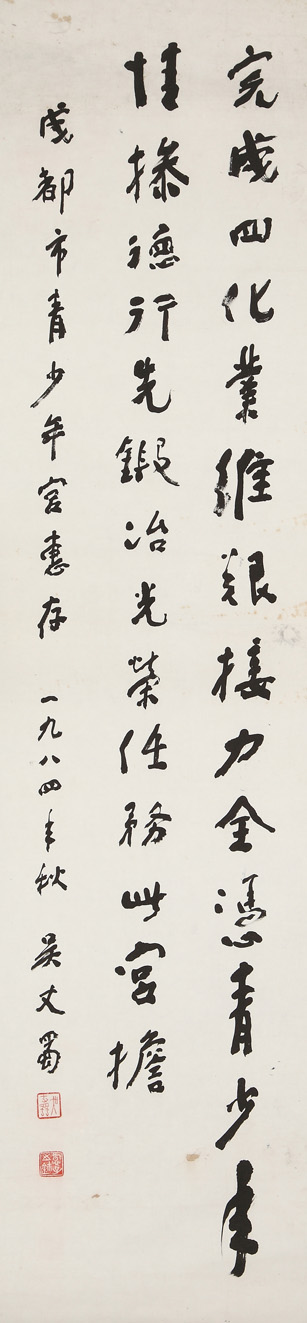 完成四化業維艱接力全憑青少年
情操德行先鍛冶光榮任務此宮擔
成都市青少年宮惠存 一九八四年秋 吳丈蜀